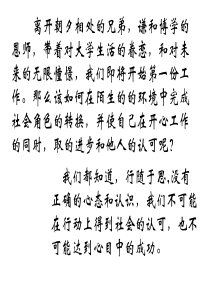 离开朝夕相处的兄弟，谦和博学的
恩师，带着对大学生活的眷恋，和对未
来的无限憧憬，我们即将开始第一份工
作。那么该如何在陌生的的环境中完成
社会角色的转换，并使自己在开心工作
的同时，取的进步和他人的认可呢？
我们都知道，行随于思，没有
正确的心态和认识，我们不可能
在行动上得到社会的认可，也不
可能达到心目中的成功。